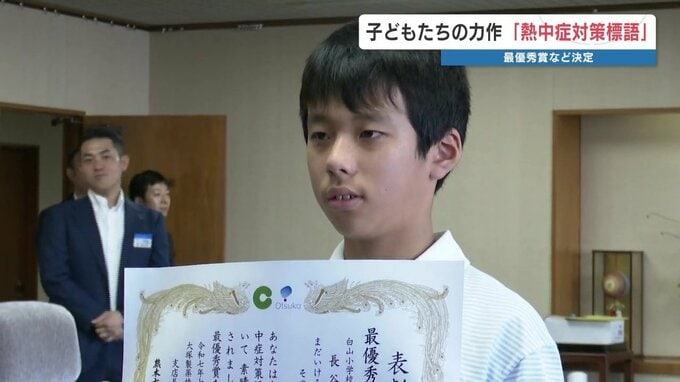 子どもたちの力作「熱中症対策標語」
最優秀賞など決定
Otsuka
表
最優秀
白山小学校
長谷
まだいける
そ
あなたは
中症対策
いて 素晴
されまし
最優秀賞
令和七年七
大塚製薬
支店長
熊本